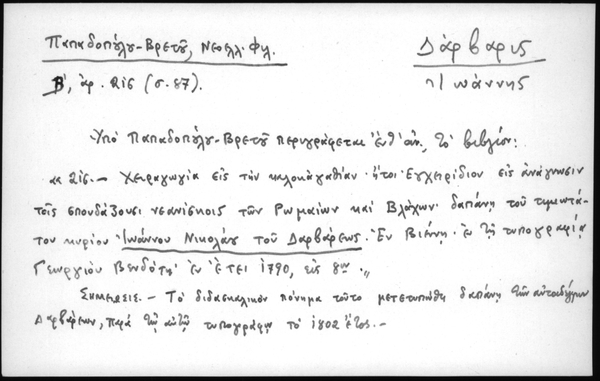 Παπαδοπούλου-Βρετοῦ, Νεοελλ. Φιλ.
Δάρβαρις
Β', ἀρ. 216 (σ. 87).
Ἰωάννης
Ὑπὸ Παπαδοπούλου-Βρετοῦ περιγράφεται ἔνθ' ἀν. τὸ βιβλίον:
« 216.— Χειραγωγία εἰς τὴν καλοκἀγαθίαν· ἤτοι Ἐγχειρίδιον εἰς ἀνάγνωσιν
τοῖς σπουδάζουσι νεανίσκοις τῶν Ρωμαίων καὶ Βλάχων· δαπάνῃ τοῦ τιμιωτά-
του κυρίου Ἰωάννου Νικολάου τοῦ Δαρβάρεως. Ἐν Βιέννῃ. Ἐν τῇ τυπογραφίᾳ
Γεωργίου Βενδότη· ἐν ἔτει 1790, εἰς 8ον.»
Σημείωσις.— Τὸ διδασκαλικὸν πόνημα τοῦτο μετετυπώθη δαπάνῃ τῶν αὐταδέλφων
Δαρβάρεων, παρὰ τῷ αὐτῷ τυπογράφῳ τὸ 1802 ἔτος.—